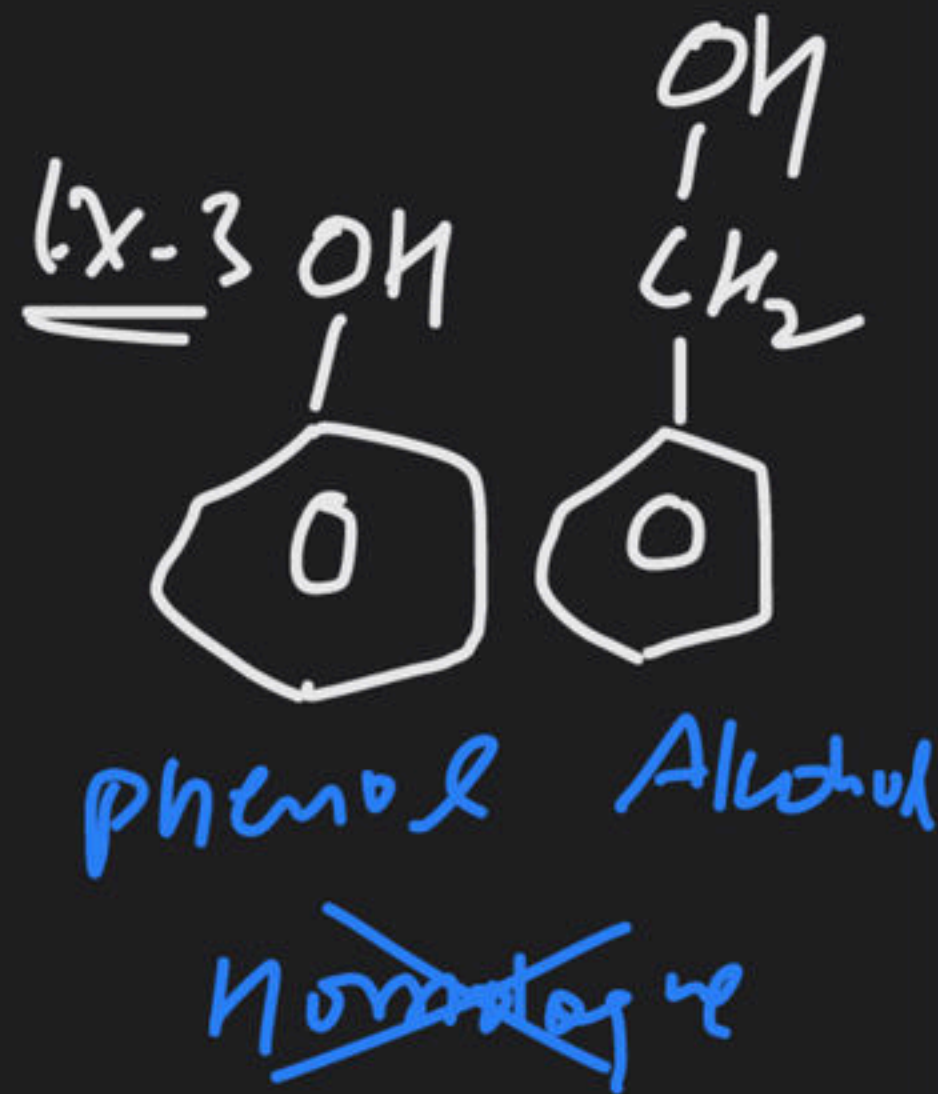 OH
Ex-3 OH
CH2
phenol Alcohol
Homologue